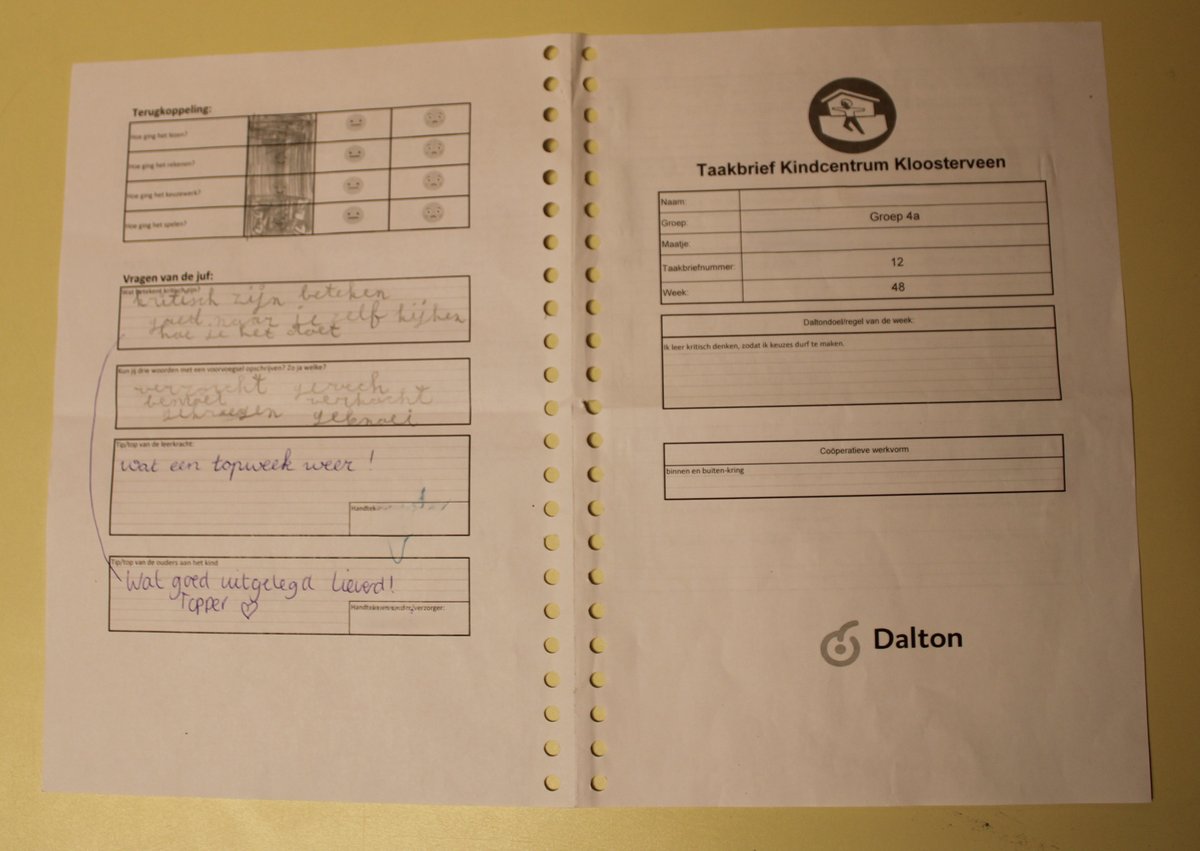 Terugkoppeling:
Hoe ging het lezen?
Hoe ging het rekenen?
Hoe ging het keuzewerk?
Hoe ging het spelen?
Vragen van de juf:
Wat betekent kritisch zijn?
kritisch zijn beteken
goed naar je zelf kijken
hoe je het doet
Kun jij drie woorden met een voorvoegsel opschrijven? Zo ja welke?
verzocht
verkocht
Tip/top van de leerkracht:
Wat een topweek weer!
Tip/top van de ouders aan het kind
Wat goed uitgelegd lieverd!
Topper
verzorger:
Taakbrief Kindcentrum Kloosterveen
Naam:
Groep: Groep 4a
Maatje:
Taakbriefnummer: 12
Week: 48
Daltondoel/regel van de week:
Ik leer kritisch denken, zodat ik keuzes durf te maken.
Coöperatieve werkvorm
binnen en buiten-kring
Dalton